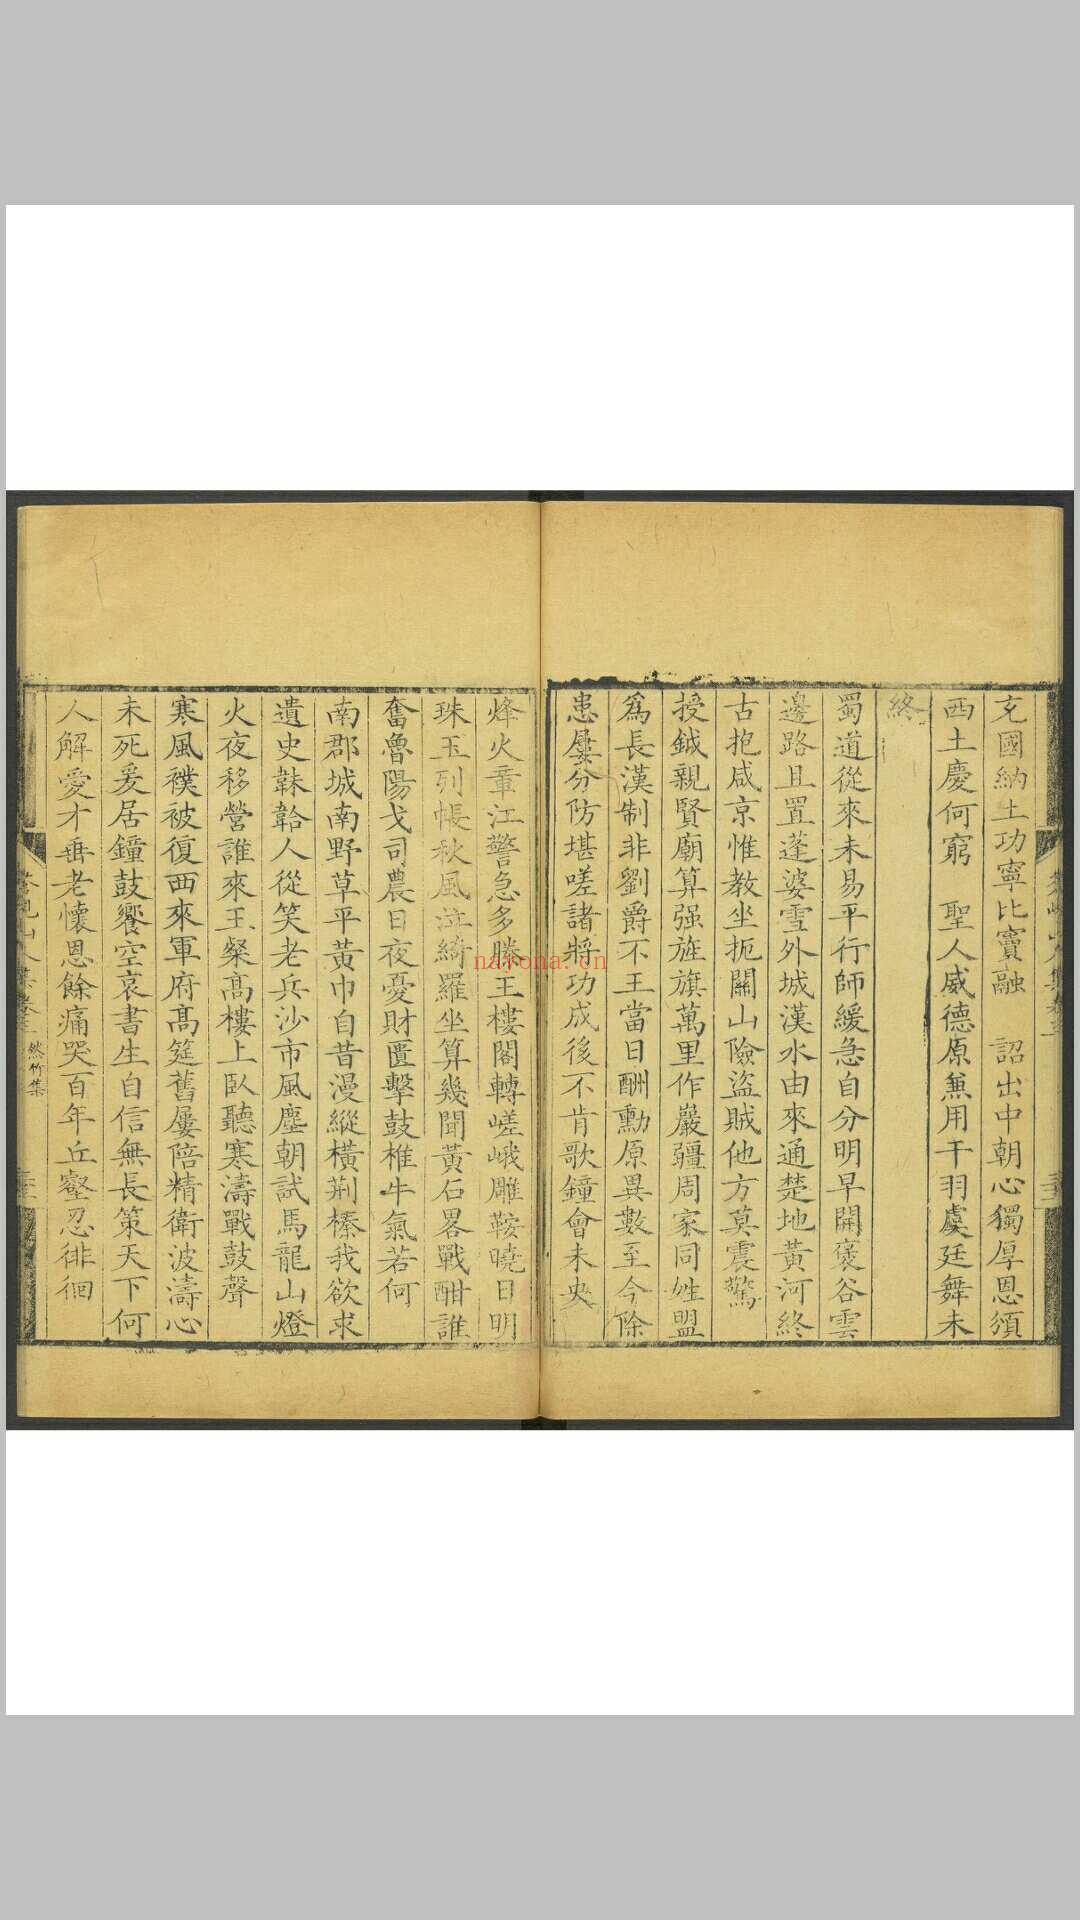 充國納土功寧比竇融　詔出中朝心獨厚恩頒
西土慶何窮　聖人威德原兼用干羽虞廷舞未
終
蜀道從來未易平行師緩急自分明早開褒谷雲
邊路且置蓬婆雪外城漢水由來通楚地黃河終
古抱咸京惟教坐扼關山險盜賊他方莫震驚
授鉞親賢廟算强旌旗萬里作巖疆周家同姓盟
爲長漢制非劉爵不王當日酬勳原異數至今除
患屢分防堪嗟諸將功成後不肯歌鐘會未央
烽火章江警急多滕王樓閣轉嵯峨雕鞍曉日明
珠玉列帳秋風泣綺羅坐算幾聞黃石畧戰酣誰
奮魯陽戈司農日夜憂財匱擊鼓椎牛氣若何
南郡城南野草平黃巾自昔漫縱橫荆榛我欲求
遺史韎韐人從笑老兵沙市風塵朝試馬龍山燈
火夜移營誰來王粲高樓上臥聽寒濤戰鼓聲
寒風襆被復西來軍府高筵舊屢陪精衛波濤心
未死爰居鐘鼓饗空哀書生自信無長策天下何
人解愛才垂老懷恩餘痛哭百年丘壑忍徘徊
然竹集
nayona.cn